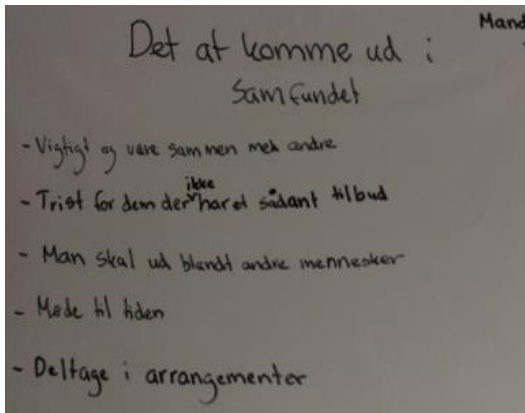 Mand
Det at komme ud i
samfundet
- Vigtigt og være sammen med andre
ikke
- Trist for dem der har et sådant tilbud
- Man skal ud blandt andre mennesker
- Møde til tiden
- Deltage i arrangementer